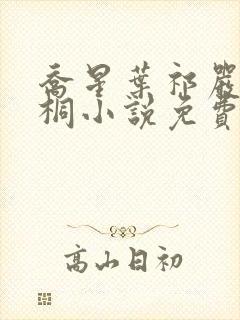 喬星葉祁嚴
桐小說免費
高山日初